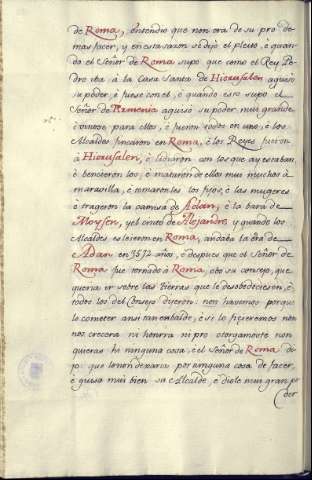 de Roma, entendio que non era de su pro de
mas facer, y en esta sazon se dejó el pleito, é quan
do el Señor de Roma supo que como el Rey Pe
dro iba á la Casa Santa de Hierusalen aguisó
su poder, é fuese con el, é quando esto supo el
Señor de Armenia aguisó su poder mui grande
é vinose para ellos, é fueron todos en uno, é los
Alcaldes fincaron en Roma, é los Reyes fueron
á Hierusalen, é lidiaron con los que ay estaban
é bencieron los, é mataron de ellos mui muchos á
maravilla, é tomaron les los fijos, é las mugeres
é trageron la camisa de Adan, é la bara de
Moysen, y el cinto de Alejandre, y quando los
Alcaldes estovieron en Roma, andaba la Era de
Adan en 3572 años, é despues que el Señor de
Roma fue tornado á Roma, obo su consejo, que
queria ir sobre las tierras que le desobedecieron, é
todos los del Consejo dijeron: non havemos porque
lo cometer ansi tan en balde, é si lo ficieremos non
nos crecera ni honrra ni pro otorgamoste non
quieras ha ninguna cosa, é el Señor de Roma di
jo: que non dexaria por ninguna cosa de facer,
é guisó mui bien su Alcalde, é diole mui gran po
der